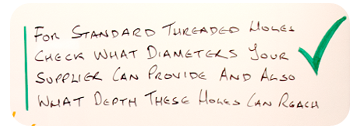 For Standard Threaded Holes
Check What Diameters Your
Supplier Can Provide And Also
What Depth These Holes Can Reach